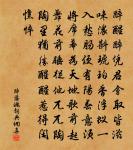 醉醒醒醉憑君會取皆滋
味濃斟琥珀香浮蟻一
入愁腸便有陽春意須
將席幕為天地歌前起
舞花前睡從他兀兀陶
陶里猶勝醒醒惹得閑
憔悴